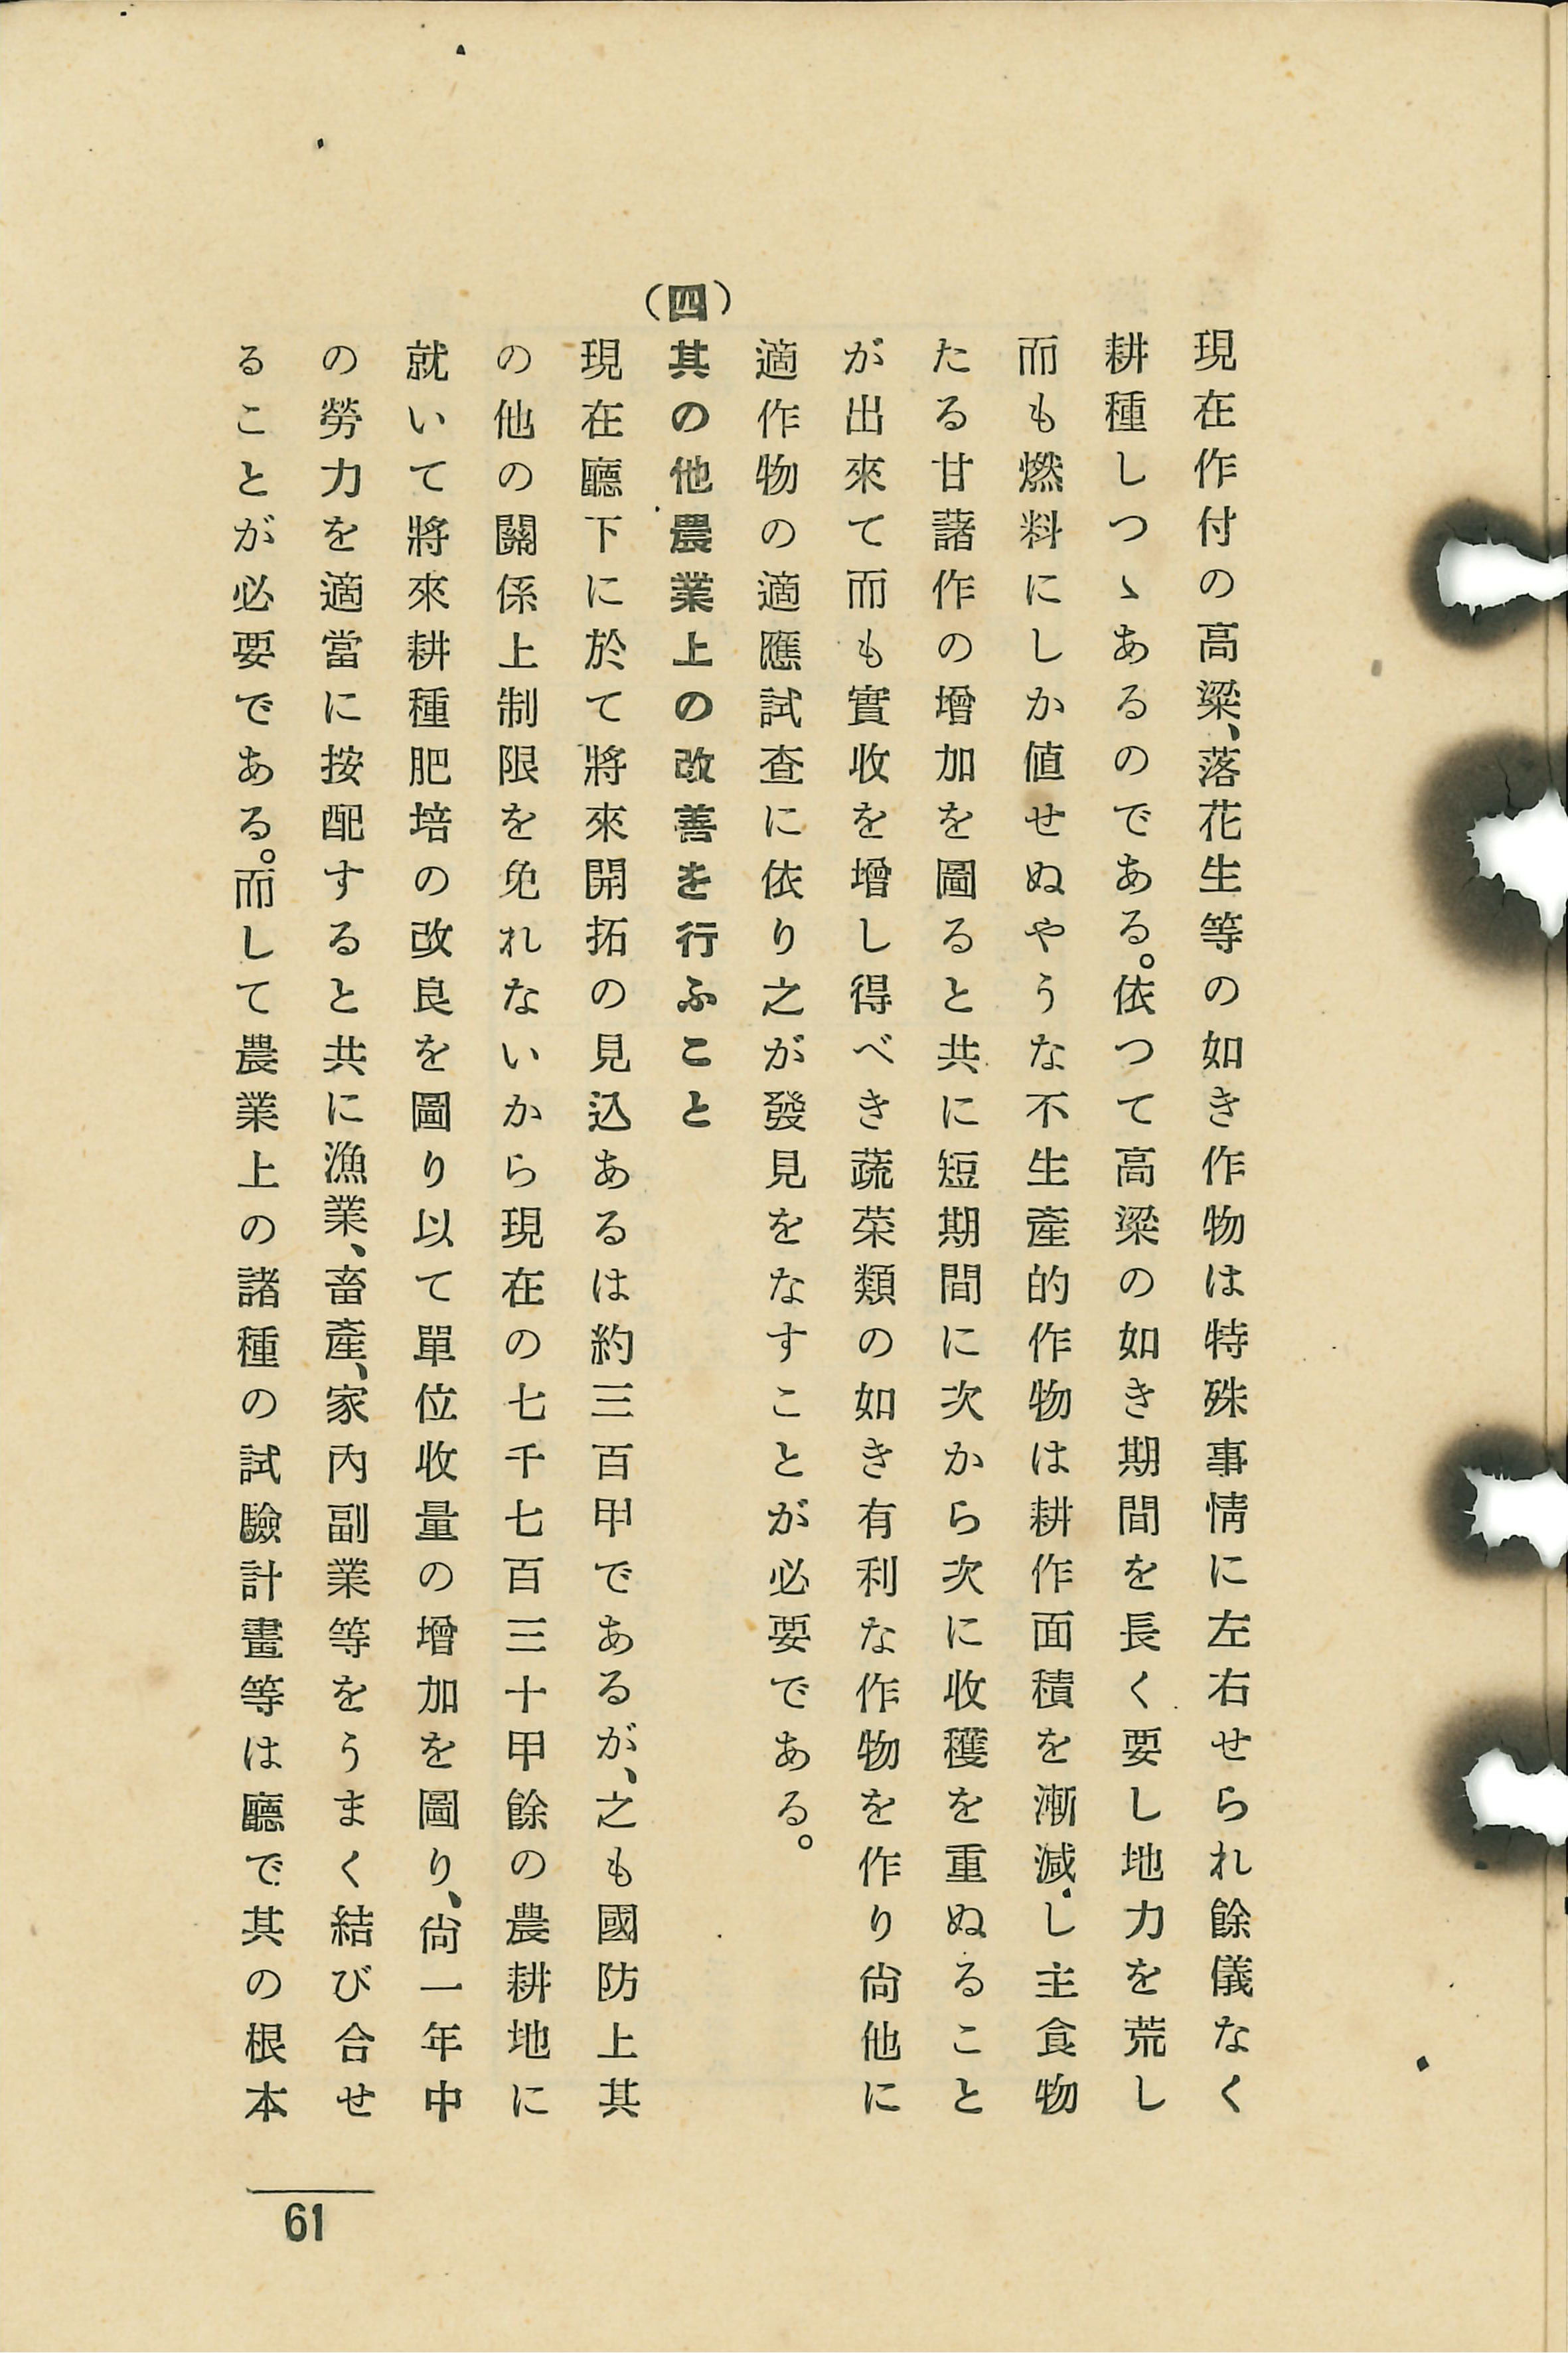 現在作付の高粱、落花生等の如き作物は特殊事情に左右せられ餘儀なく
耕種しつゝあるのである。依つて高粱の如き期間を長く要し地力を荒し
而も燃料にしか値せぬやうな不生產的作物は耕作面積を漸減し主食物
たる甘藷作の增加を圖ると共に短期間に次から次に收穫を重ぬること
が出來て而も實收を增し得べき蔬菜類の如き有利な作物を作り尙他に
適作物の適應試查に依り之が發見をなすことが必要である。
（四）其の他農業上の改善を行ふこと
現在廳下に於て將來開拓の見込あるは約三百甲であるが、之も國防上其
の他の關係上制限を免れないから現在の七千七百三十甲餘の農耕地に
就いて將來耕種肥培の改良を圖り以て單位收量の增加を圖り、尙一年中
の勞力を適當に按配すると共に漁業、畜產、家內副業等をうまく結び合せ
ることが必要である。而して農業上の諸種の試驗計畫等は廳で其の根本
61